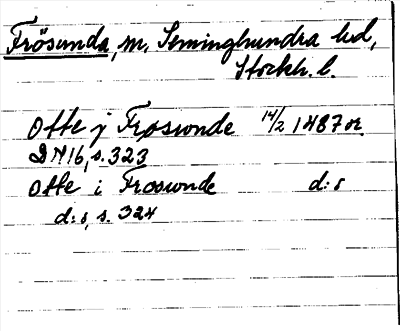 Frösunda, m, Seminghundra hd,
Stockh. l.
Otte j Froswnde 14/2 1487 or.
DN16, s. 323
Otte i Froswnde d:s
d:s, s. 324